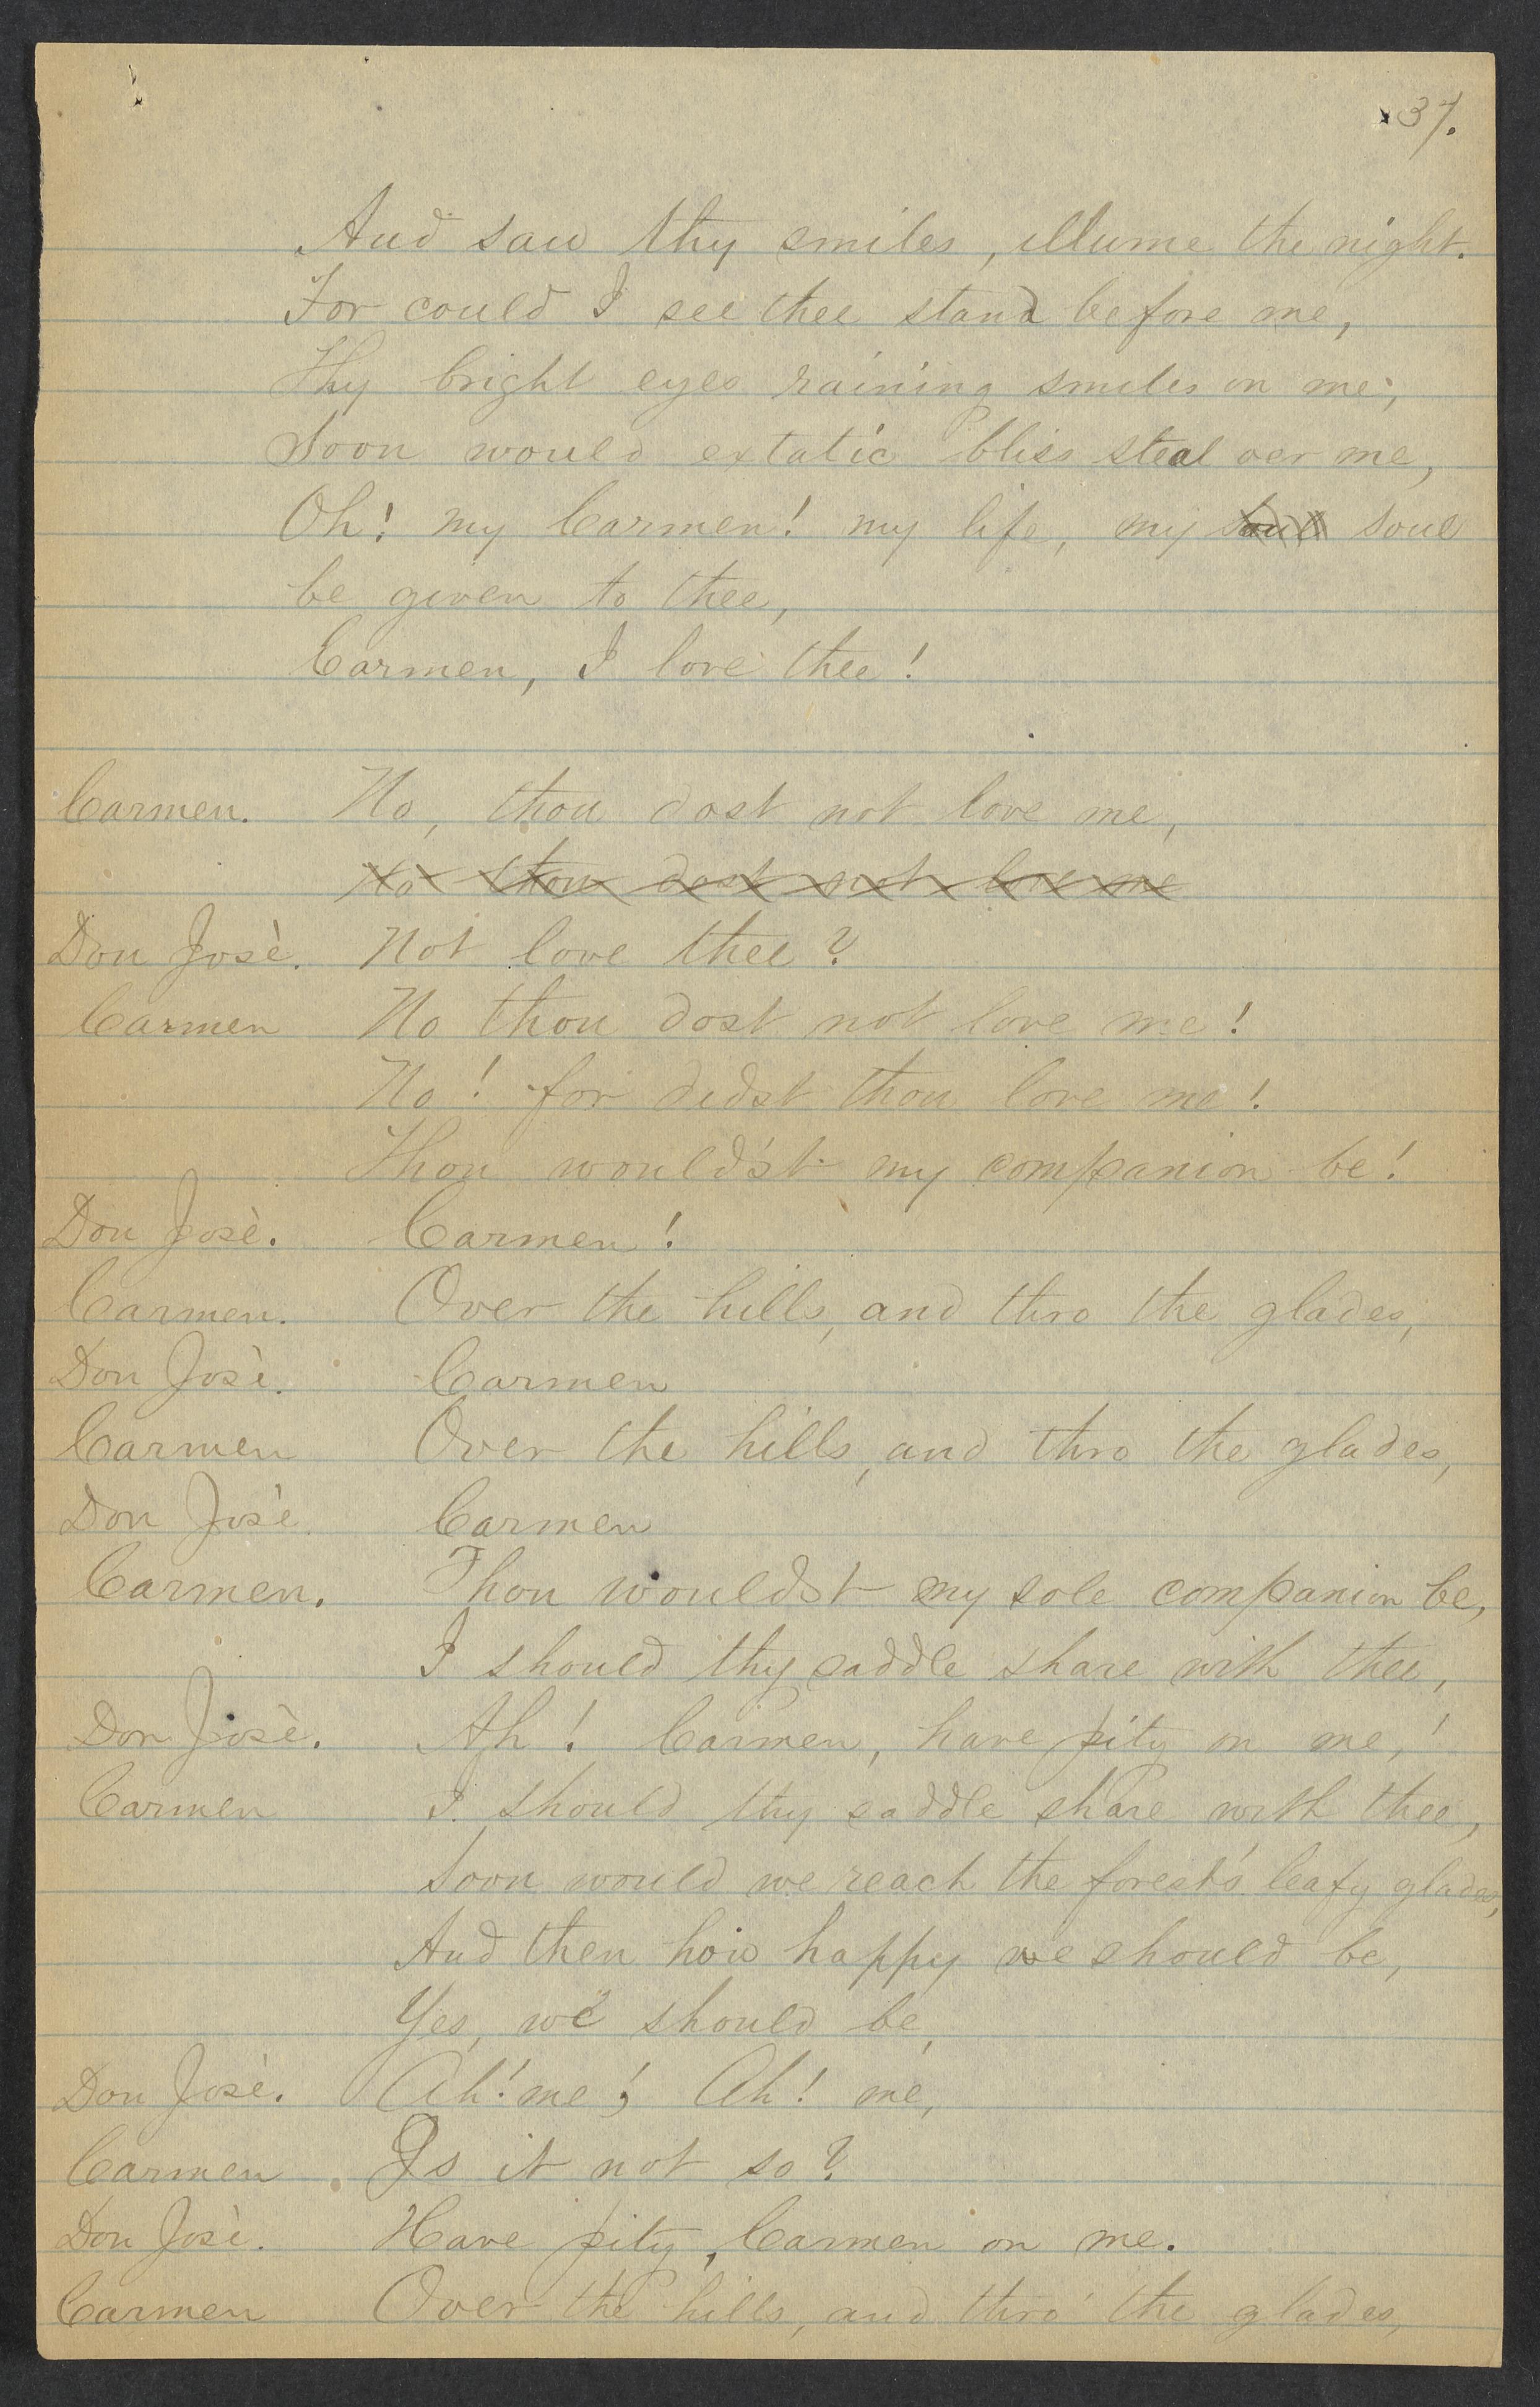 37.
And saw thy smiles, illume the night.
For could I see thee stand before me,
Thy bright eyes raining smiles on me;
Soon would extatic bliss steal oer me,
Oh! my Carmen! my life, my soul soul
be given to thee,
Carmen, I love thee!
Carmen. No, thou dost not love me,
No thou dost not love me
Don Josè. Not love thee?
Carmen No thou dost not love me!
No! for didst thou love me!
Thou would'st my companion be!
Don Josè. Carmen!
Carmen. Over the hills, and thro the glades,
Don Josè. Carmen
Carmen Over the hills, and thro the glades,
Don Josè. Carmen
Carmen. Thou wouldst my sole companion be,
I should thy saddle share with thee,
Don Josè. Ah! Carmen, have pity on me,!
Carmen I should thy saddle share with thee,
Soon would we reach the forest's leafy glades,
And then how happy we should be,
Yes, we should be,
Don Josè. Ah! me! Ah! me,
Carmen. Is it not so?
Don Josè. Have pity, Carmen on me.
Carmen Over the hills, and thro' the glades,